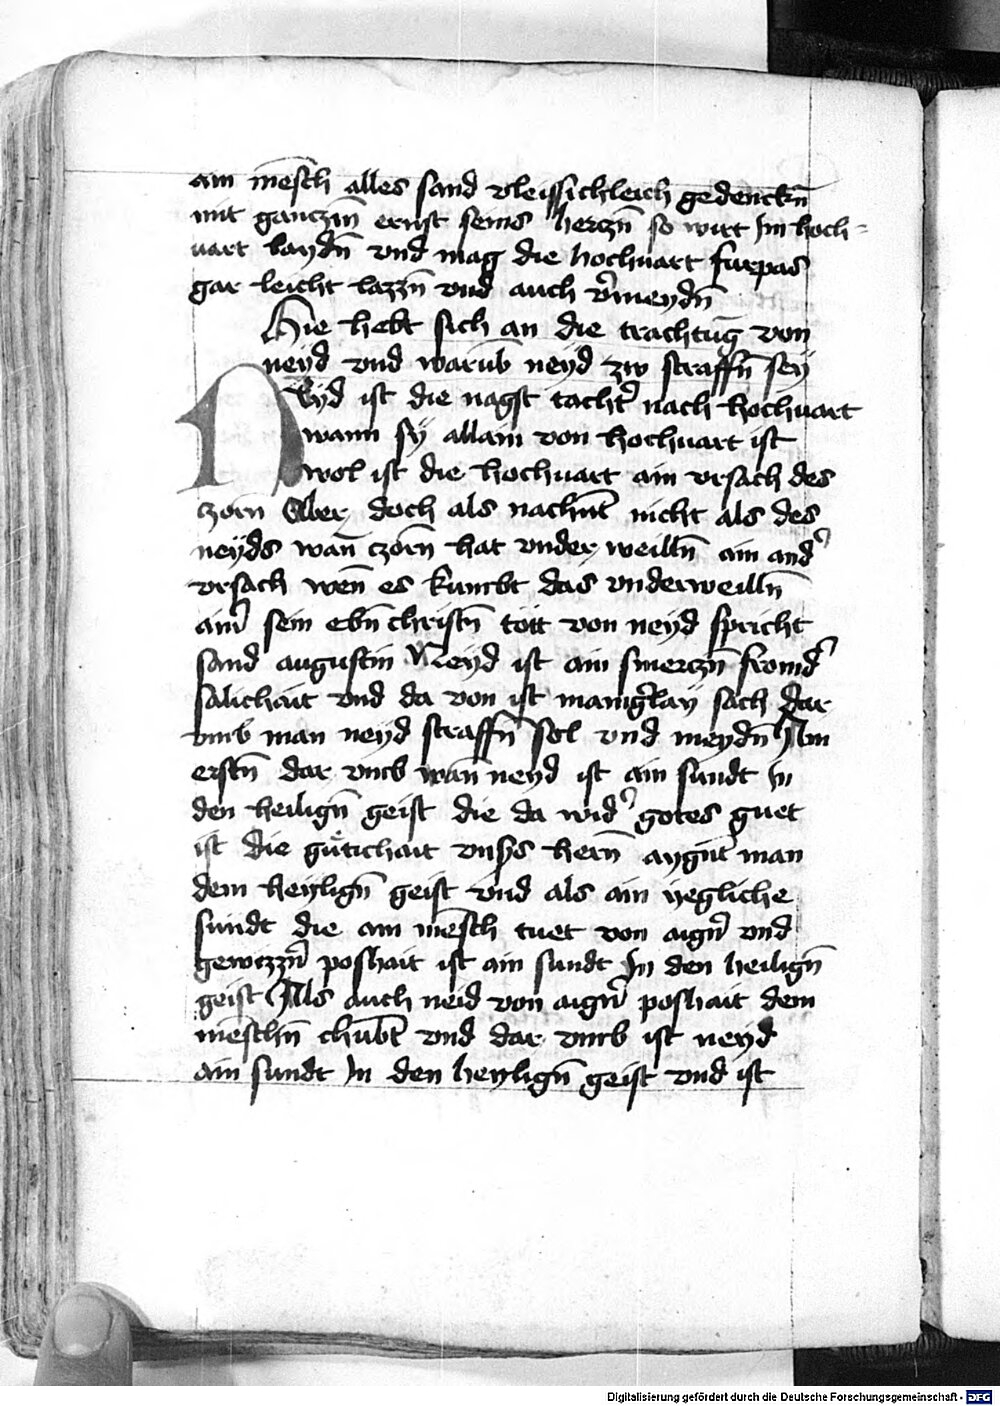 ain mēsch alles sand vleissichleich gedenckn̄
mit ganczm̄ ernst seins herczn̄ so wirt Im hoch-
uart laydn̄ vnd mag die hochuart furpas
gar leicht lazzn̄ vnd auch v̄meydn̄
Hie hebt sich an die trachtūg von
neyd vnd warūb neyd zw straffn̄ sey
Neyd ist die nagst tacht̄ nach hochuart
wann sy allain von hochuart ist
wol ist die hochuart ain vrsach des
czorn Aber doch als nachn̄t nicht als des
neyds wan̄ czorn̄ hat vnder weilln̄ ain and̄
vrsach wen̄ es kumbt das vnderweilln̄
ain̄ sein ebn̄ christn̄ tött von neyd spricht
sand augustin Neyd ist ain smerczn̄ fromd̄
salichait vnd da von ist maniḡlay sach dar
vmb man neyd straffn̄ sol vnd meydn̄ Am
erstn̄ dar vmb wan̄ neyd ist ain sundt In
den heilign̄ geist die da wid̄ gotes guet
ist die gütichait vnsers hern̄ aygn̄t man
dem heylign̄ geist vnd als ain yegliche
sundt die ain mēsch tuet von aign̄ vnd
gewizzn̄ poshait ist ain sundt In den heilign̄
geist Als auch neid von aign̄ poshait dem
mēschn̄ chūbt vnd dar vmb ist neyd
ain sundt In den heylign̄ geist vnd ist
Digitalisierung gefördert durch die Deutsche Forschungsgemeinschaft - DFG